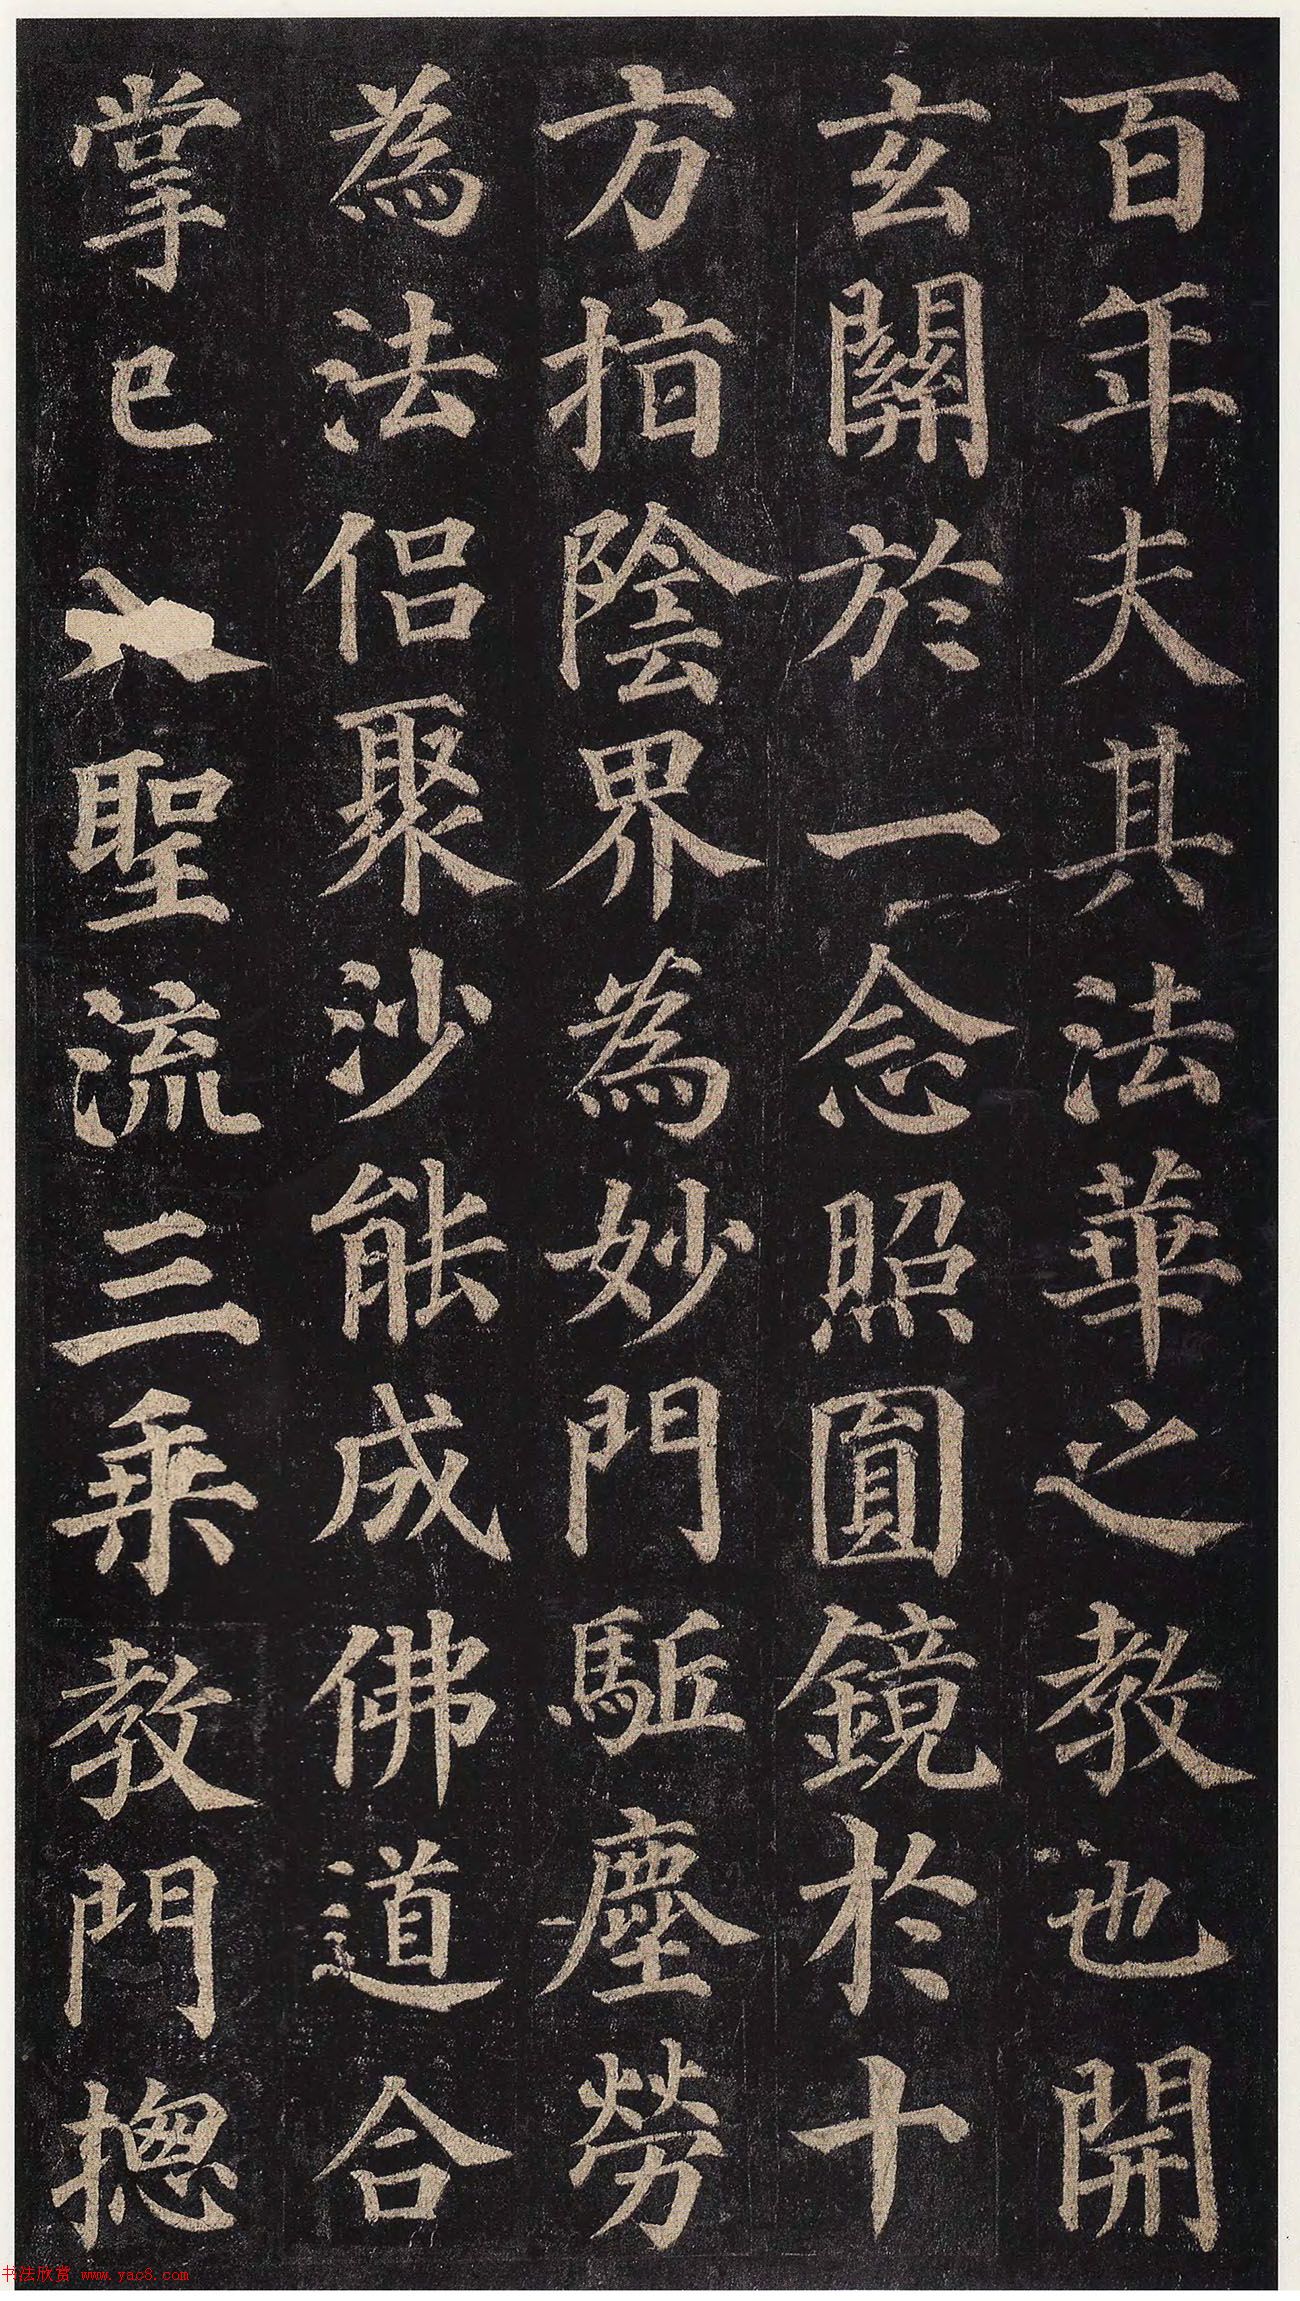 百年夫其法華之教也開
玄關於一念照圓鏡於十
方指陰界為妙門駈塵勞
為法侶聚沙能成佛道合
掌已聖流三乘教門揔
书法欣赏 www.yac8.com